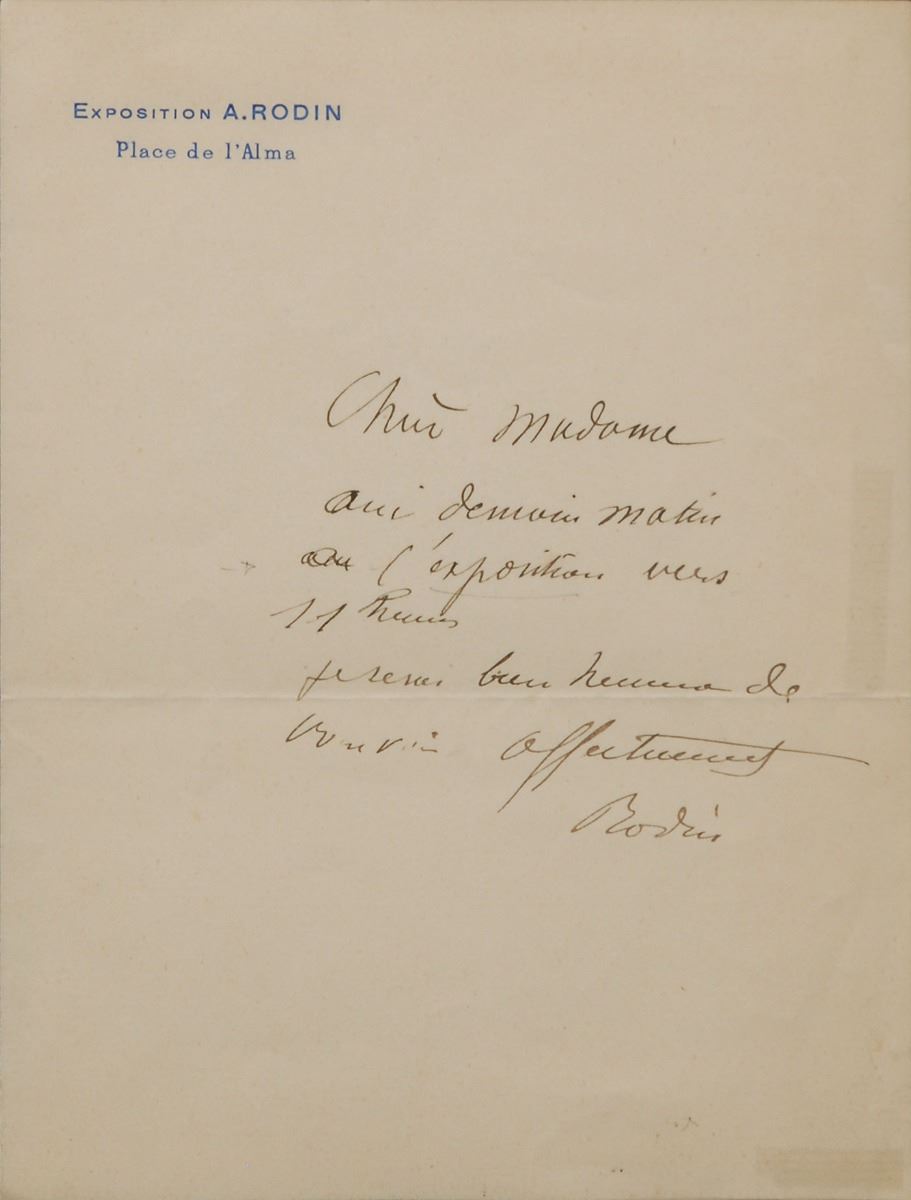 EXPOSITION A.RODIN
Place de l'Alma
Chère Madame
oui demain matin
à l'exposition vers
11 heures
je serai bien heureux de
vous voir affectueusement
Rodin